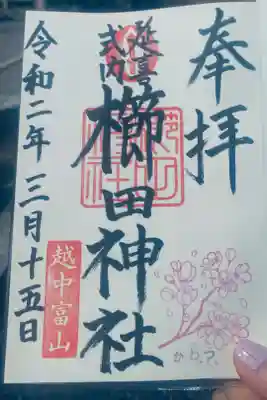 奉拝
延喜
式内
櫛田神社
越中富山
令和二年三月十五日